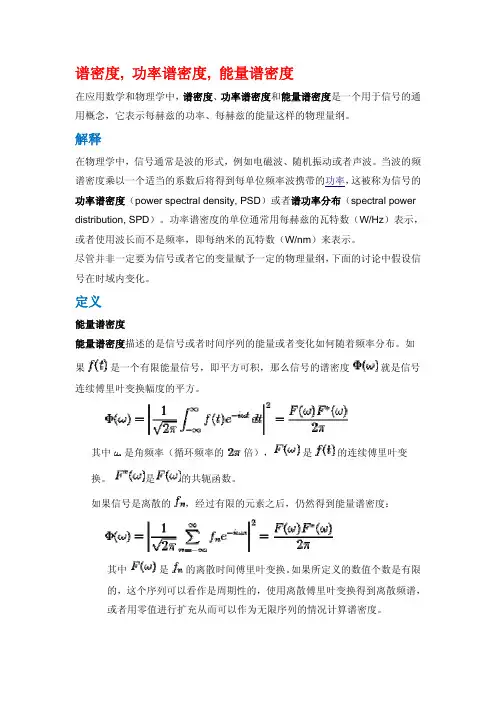 谱密度, 功率谱密度, 能量谱密度
在应用数学和物理学中，谱密度、功率谱密度和能量谱密度是一个用于信号的通
用概念，它表示每赫兹的功率、每赫兹的能量这样的物理量纲。
解释
在物理学中，信号通常是波的形式，例如电磁波、随机振动或者声波。当波的频
谱密度乘以一个适当的系数后将得到每单位频率波携带的功率，这被称为信号的
功率谱密度（power spectral density, PSD）或者谱功率分布（spectral power
distribution, SPD）。功率谱密度的单位通常用每赫兹的瓦特数（W/Hz）表示，
或者使用波长而不是频率，即每纳米的瓦特数（W/nm）来表示。
尽管并非一定要为信号或者它的变量赋予一定的物理量纲，下面的讨论中假设信
号在时域内变化。
定义
能量谱密度
能量谱密度描述的是信号或者时间序列的能量或者变化如何随着频率分布。如
果 f(t) 是一个有限能量信号，即平方可积，那么信号的谱密度 Φ(ω) 就是信号
连续傅里叶变换幅度的平方。
Φ(ω) = |1/√2π ∫_{-∞}^{∞} f(t)e^{-iωt} dt|² = F(ω)F*(ω)/2π
其中 ω 是角频率（循环频率的 2π 倍），F(ω) 是 f(t) 的连续傅里叶变
换。 F*(ω)是F(ω)的共轭函数。
如果信号是离散的 fₙ，经过有限的元素之后，仍然得到能量谱密度：
Φ(ω) = |1/√2π ∑_{n=-∞}^{∞} fₙe^{-iωn}|² = F(ω)F*(ω)/2π
其中 F(ω) 是 fₙ 的离散时间傅里叶变换。如果所定义的数值个数是有限
的，这个序列可以看作是周期性的，使用离散傅里叶变换得到离散频谱，
或者用零值进行扩充从而可以作为无限序列的情况计算谱密度。